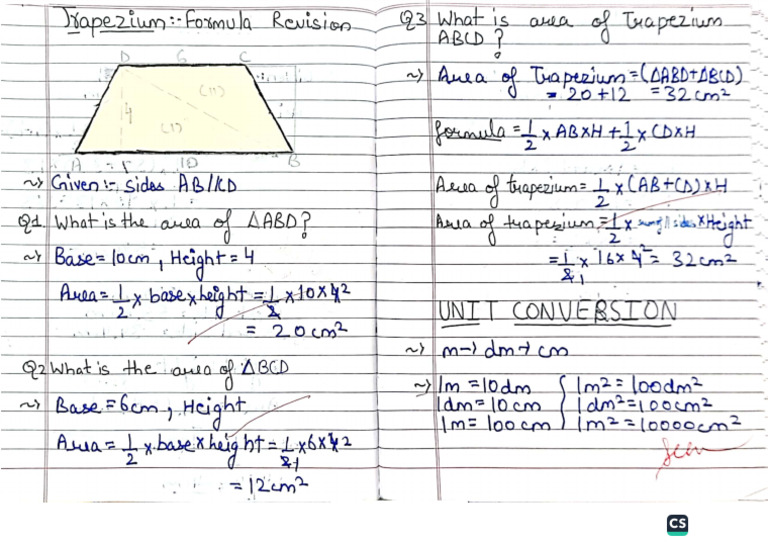 Trapezium:- Formula Revision
D 6 C
4
(II)
(I)
A 10 B
~> Given:- Sides AB//CD
Q1. What is the area of △ABD?
~> Base = 10cm, Height = 4
Area = 1/2 x base x height = 1/2 x 10 x 4 2
= 20cm²
Q2 What is the area of △BCD
~> Base = 6cm, Height
Area = 1/2 x base x height = 1/2 1 x 6 x 4 2
= 12cm²
Q3 What is area of Trapezium
ABCD?
~> Area of Trapezium = (△ABD+△BCD)
= 20+12 = 32cm²
formula = 1/2 x ABxH + 1/2 x CDxH
Area of trapezium = 1/2 x (AB+CD) x H
Area of trapezium = 1/2 x sum of // sides x Height
= 1/2 1 x 16 x 4 2 = 32cm²
UNIT CONVERSION
~> m → dm → cm
~> 1m = 10dm { 1m² = 100dm²
1dm = 10cm { 1dm² = 100cm²
1m = 100cm { 1m² = 10000cm²
Seen
CS